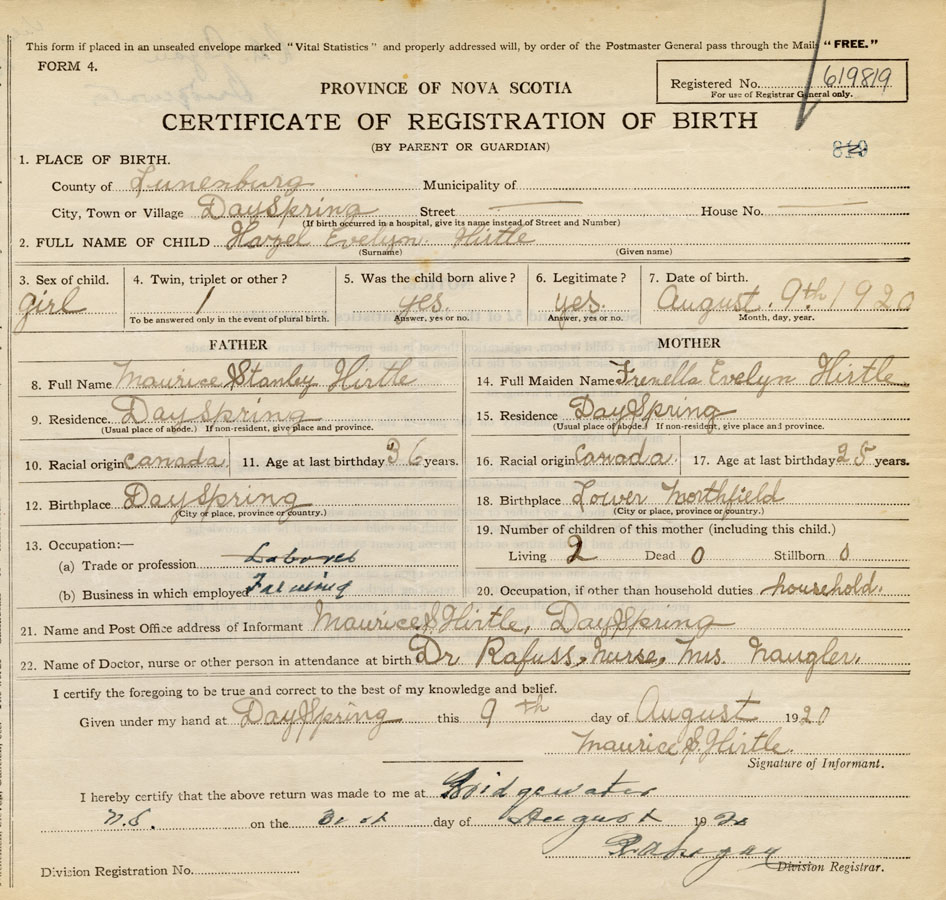 This form if placed in an unsealed envelope marked "Vital Statistics" and properly addressed will, by order of the Postmaster General pass through the Mails "FREE."
FORM 4.
Registered No. 619819
For use of Registrar General only.
PROVINCE OF NOVA SCOTIA
CERTIFICATE OF REGISTRATION OF BIRTH
(BY PARENT OR GUARDIAN)
1. PLACE OF BIRTH.
County of Lunenburg Municipality of
City, Town or Village DaySpring Street House No.
(If birth occurred in a hospital, give its name instead of Street and Number)
2. FULL NAME OF CHILD Hazel Evelyn Hirtle
(Surname) (Given name)
3. Sex of child. 4. Twin, triplet or other? 5. Was the child born alive? 6. Legitimate? 7. Date of birth.
girl 1 yes. yes. August. 9th 1920
To be answered only in the event of plural birth. Answer, yes or no. Answer, yes or no. Month, day, year.
FATHER MOTHER
8. Full Name Maurice Stanley Hirtle 14. Full Maiden Name Frenella Evelyn Hirtle
9. Residence. DaySpring 15. Residence DaySpring
(Usual place of abode.) If non-resident, give place and province. (Usual place of abode.) If non-resident, give place and province.
10. Racial origin Canada. 11. Age at last birthday 36 years. 16. Racial origin Canada. 17. Age at last birthday 25 years.
12. Birthplace DaySpring 18. Birthplace Lower Northfield
(City or place, province or country.) (City or place, province or country.)
13. Occupation:— 19. Number of children of this mother (including this child.)
(a) Trade or profession Laborer Living 2 Dead 0 Stillborn 0
(b) Business in which employed Farming 20. Occupation, if other than household duties household.
21. Name and Post Office address of Informant Maurice S. Hirtle, DaySpring
22. Name of Doctor, nurse or other person in attendance at birth Dr Rafuss, Nurse, Mrs. Naugler.
I certify the foregoing to be true and correct to the best of my knowledge and belief.
Given under my hand at DaySpring this 9th day of August 1920
Maurice S. Hirtle.
Signature of Informant.
I hereby certify that the above return was made to me at Bridgewater
N.S. on the 31st day of August 1920
Division Registrar.
Division Registration No.